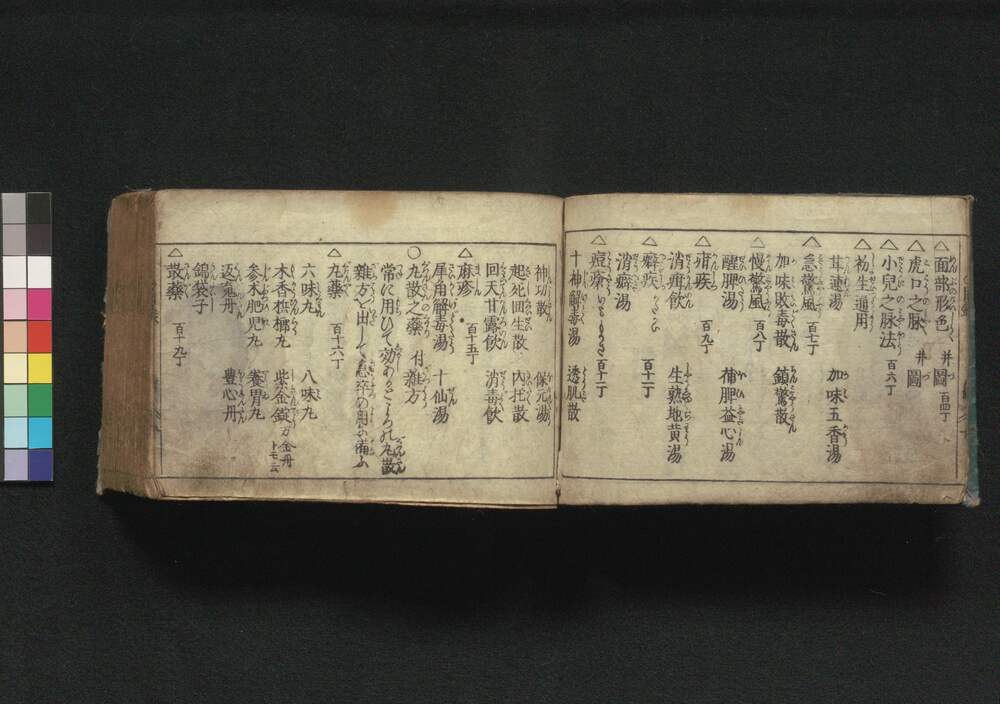 △面部形色 并圖 百四丁
△虎口之脉 并圖
△小兒之脉法 百六丁
△初生通用
茸蓮湯 加味五香湯
△急驚風 百七丁
加味敗毒散 鎮驚散
△慢驚風 百八丁
醒脾湯 補脾益心湯
△疳疾 百九丁
消疳飲 生熟地黄湯
△癖疾 百十一丁
消癖湯
△痘疹 百十二丁
十神解毒湯 透肌散
神功散 保元湯
起死回生散 内托散
回天甘露飲 消毒飲
△麻疹 百十五丁
犀角解毒湯 十仙湯
○丸散之藥 付雜方
常に用ひて効あるところの丸散
雜方を出して急卒の用に備ふ
△丸藥 百十六丁
六味丸 八味丸
木香檳榔丸 紫金錠
參朮肥児丸 養胃丸
返魂丹 豊心丹
錦袋子
△散藥 百十九丁